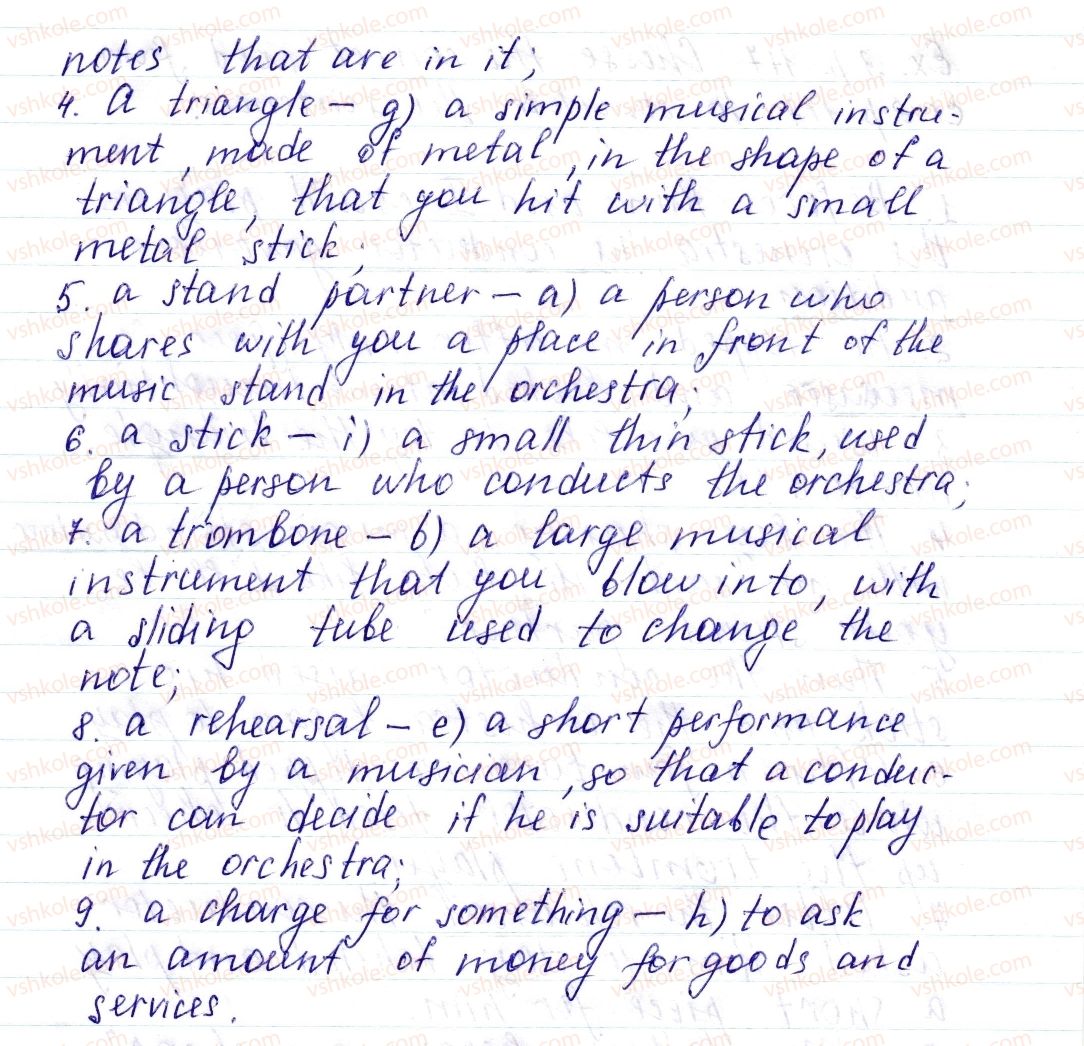 notes that are in it;
4. A triangle – g) a simple musical instru-
ment, made of metal, in the shape of a
triangle, that you hit with a small
metal stick;
5. a stand partner – a) a person who
shares with you a place in front of the
music stand in the orchestra;
6. a stick – i) a small thin stick, used
by a person who conducts the orchestra;
7. a trombone – b) a large musical
instrument that you blow into, with
a sliding tube used to change the
note;
8. a rehearsal – e) a short performance
given by a musician, so that a conduc-
tor can decide if he is suitable to play
in the orchestra;
9. a charge for something – h) to ask
an amount of money for goods and
services.